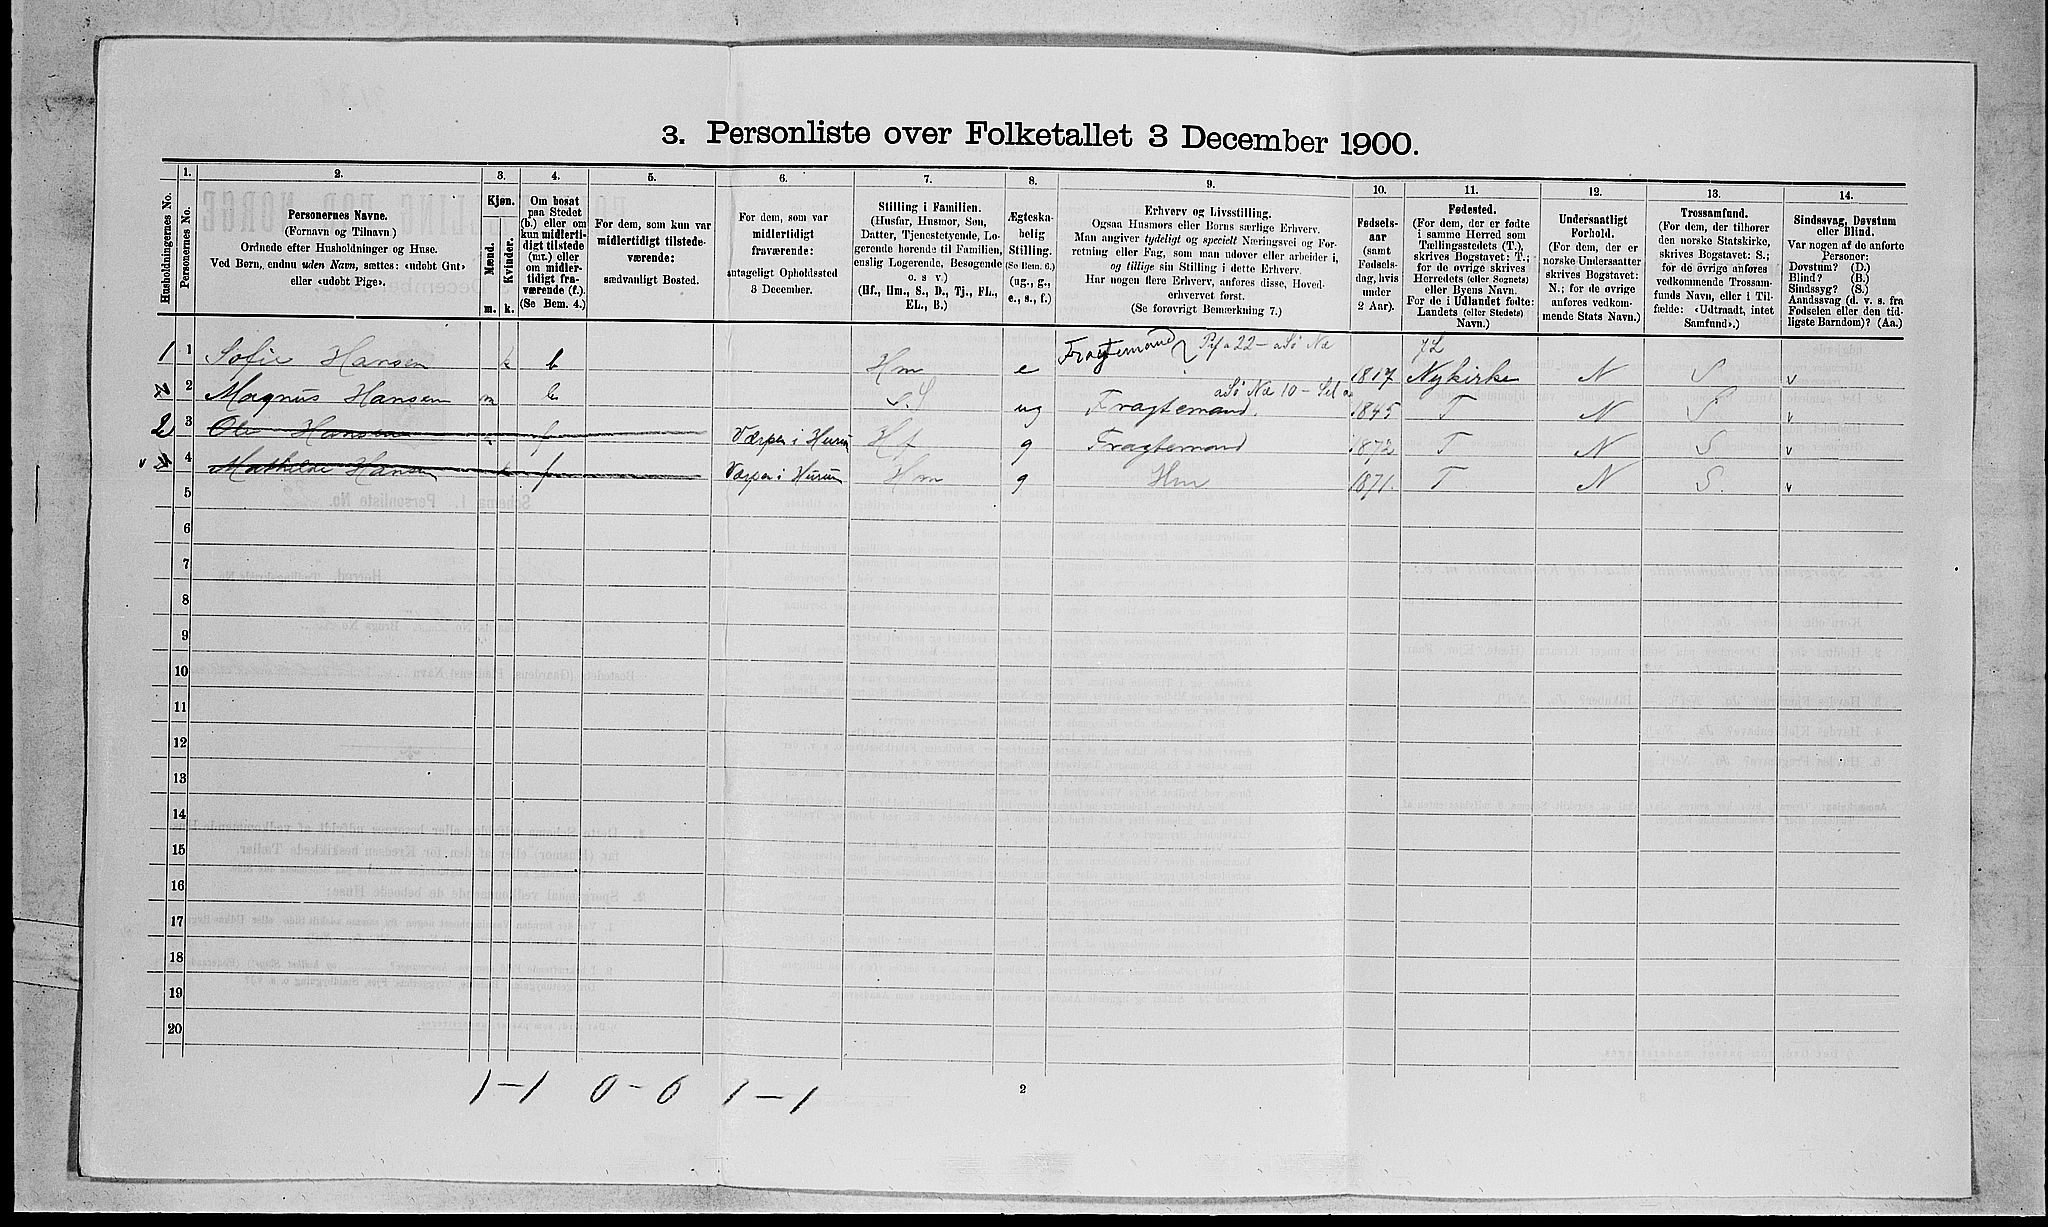 3. Personliste over Folketallet 3 December 1900.
Husholdningernes No.
1. Personernes No.
2. Personernes Navne. (Fornavn og Tilnavn) Ordnede efter Husholdninger og Huse. Ved Børn, endnu uden Navn, sættes: «udøbt Gut» eller «udøbt Pige».
3. Kjøn. Mænd. Kvinder. m. k.
4. Om bosat paa Stedet (b.) eller om kun midlertidigt tilstede (mt.) eller om midlertidigt fraværende (f.). (Se Bem. 4.)
5. For dem, som kun var midlertidigt tilstedeværende: sædvanligt Bosted.
6. For dem, som var midlertidigt fraværende: antageligt Opholdssted 3 December.
7. Stilling i Familien. (Husfar, Husmor, Søn, Datter, Tjenestetyende, Logerende hørende til Familien, enslig Logerende, Besøgende o. s. v.) (Hf., Hm., S., D., Tj., FL., EL., B.)
8. Ægteskabelig Stilling. (Se Bem. 6.) (ug., g., e., s., f.)
9. Erhverv og Livsstilling. Ogsaa Husmors eller Børns særlige Erhverv. Man angiver tydeligt og specielt Næringsvei og Forretning eller Fag, som man udøver eller arbeider i, og tillige sin Stilling i dette Erhverv. Har nogen flere Erhverv, anføres disse, Hovederhvervet først. (Se forøvrigt Bemærkning 7.)
10. Fødselsaar (samt Fødselsdag, hvis under 2 Aar).
11. Fødested. (For dem, der er fødte i samme Herred som Tællingsstedets (T.), skrives Bogstavet: T.; for de øvrige skrives Herredets (eller Sognets) eller Byens Navn. For de i Udlandet fødte: Landets (eller Stedets) Navn.)
12. Undersaatligt Forhold. (For dem, der er norske Undersaatter skrives Bogstavet: N.; for de øvrige anføres vedkommende Stats Navn.)
13. Trossamfund. (For dem, der tilhører den norske Statskirke, skrives Bogstavet: S.; for de øvrige anføres vedkommende Trossamfunds Navn, eller i Tilfælde: «Udtraadt, intet Samfund».)
14. Sindssvag, Døvstum eller Blind. Var nogen af de anførte Personer: Døvstum? (D.) Blind? (B.) Sindssyg? (S.) Aandssvag (d. v. s. fra Fødselen eller den tidligste Barndom)? (Aa.)
1 1 Sofie Hansen k b Hm e Fragtemand 1817 Nykirke N S v
2 Magnus Hansen m b S ug Fragtemand. 1845 T N S v
2 3 Ole Hansen f Værpen i Hurum Hf g Fragtemand 1872 T N S v
4 Mathilde Hansen k f Værpen i Hurum Hm g Hm 1871. T N S. v
5
6
7
8
9
10
11
12
13
14
15
16
17
18
19
20
1-1 0-0 1-1
2